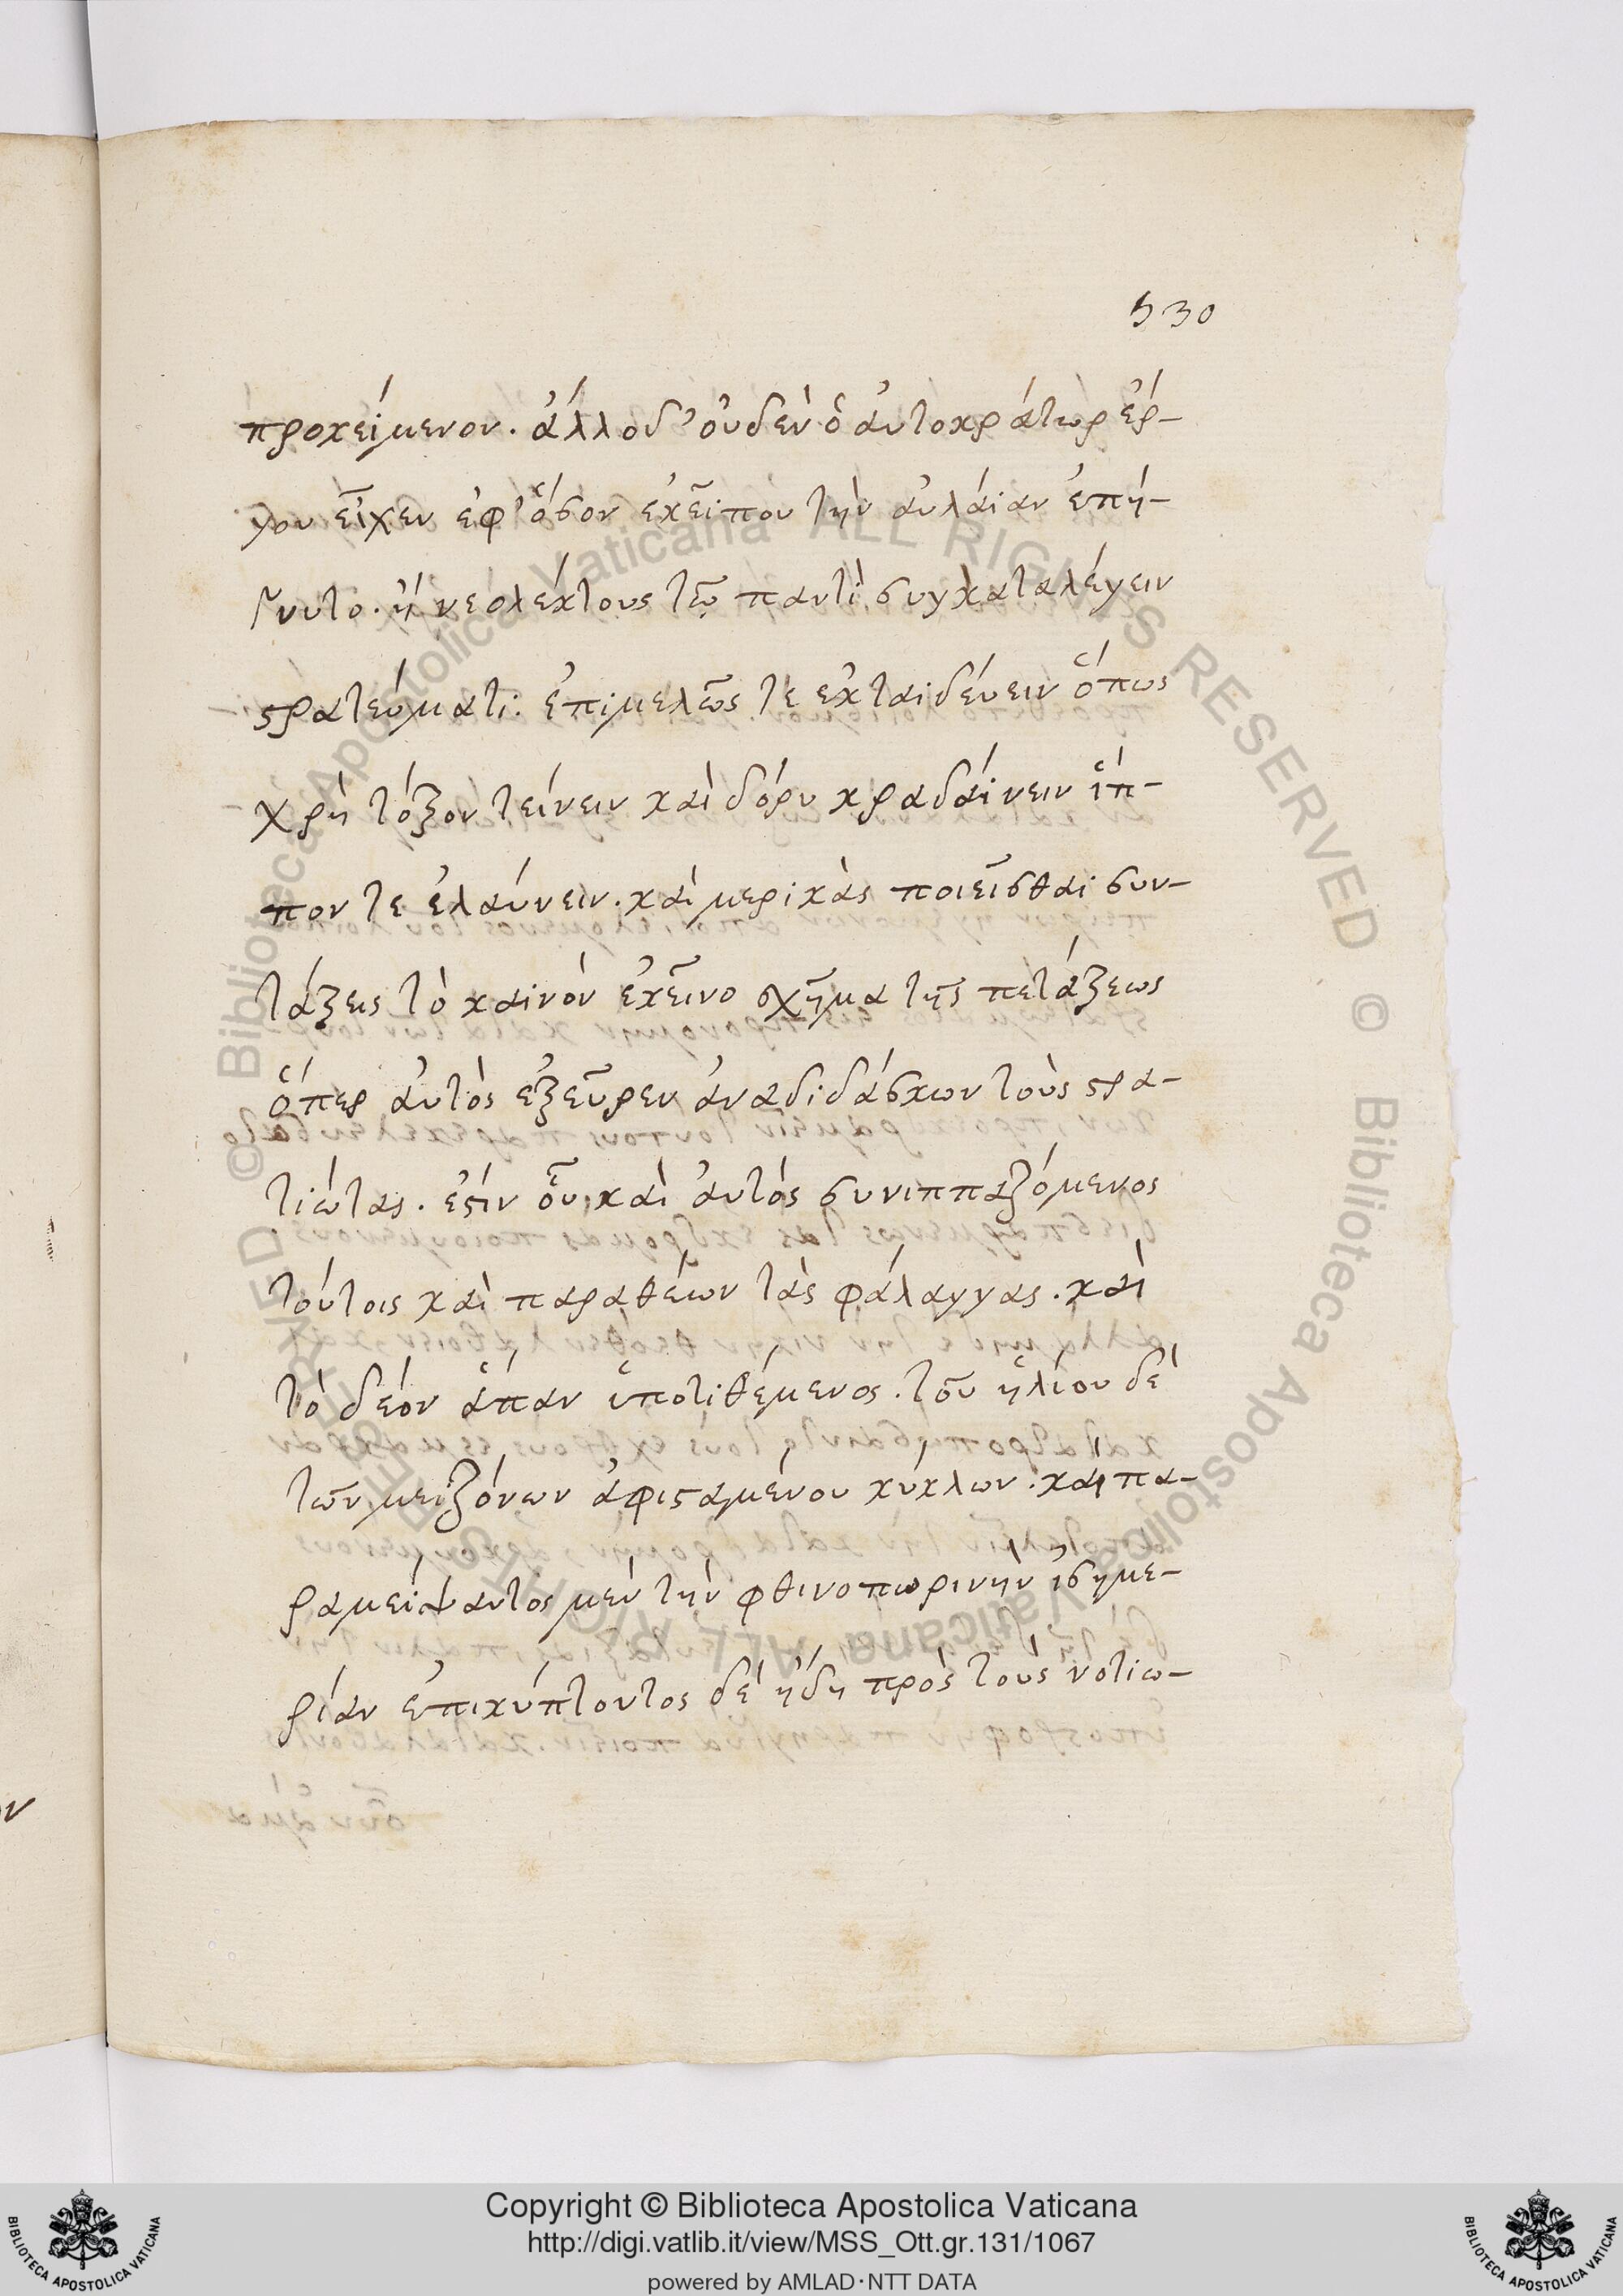 530
προκείμενον. ἄλλο δ' οὐδὲν ὁ αὐτοκράτωρ ἔρ-
γον εἶχεν ἐφ' ὅσον ἐκεῖ που τὴν αὐλαίαν ἐπή-
γνυτο. ἢ νεολέκτους τῶ παντὶ συγκαταλέγειν
στρατεύματι: ἐπιμελῶς τε ἐκπαιδεύειν ὅπως
χρὴ τόξον τείνειν καὶ δόρυ κραδαίνειν ἵπ-
πον τε ἐλαύνειν. καὶ μερικὰς ποιεῖσθαι συν-
τάξεις τὸ καινὸν ἐκεῖνο σχῆμα τῆς πετάξεως
ὅπερ αὐτὸς ἐξεῦρεν ἀναδιδάσκων τοὺς στρα-
τιώτας. ἔστιν οὗ καὶ αὐτός συνιππαζόμενος
τούτοις καὶ παραθέων τὰς φάλαγγας. καὶ
τὸ δέον ἅπαν ὑποτιθέμενος. τοῦ ἡλίου δὲ
τῶν μειζόνων ἀφισταμένου κύκλων. καὶ πα-
ραμείψαντος μὲν τὴν φθινοπωρινὴν ἰσημε-
ρίαν ἐπικύπτοντος δὲ ἤδη πρὸς τοὺς νοτιω-
Copyright © Biblioteca Apostolica Vaticana
http://digi.vatlib.it/view/MSS_Ott.gr.131/1067
powered by AMLAD·NTT DATA
BIBLIOTECA APOSTOLICA VATICANA
BIBLIOTECA APOSTOLICA VATICANA
© Biblioteca Apostolica Vaticana ALL RIGHTS RESERVED
© Biblioteca Apostolica Vaticana ALL RIGHTS RESERVED